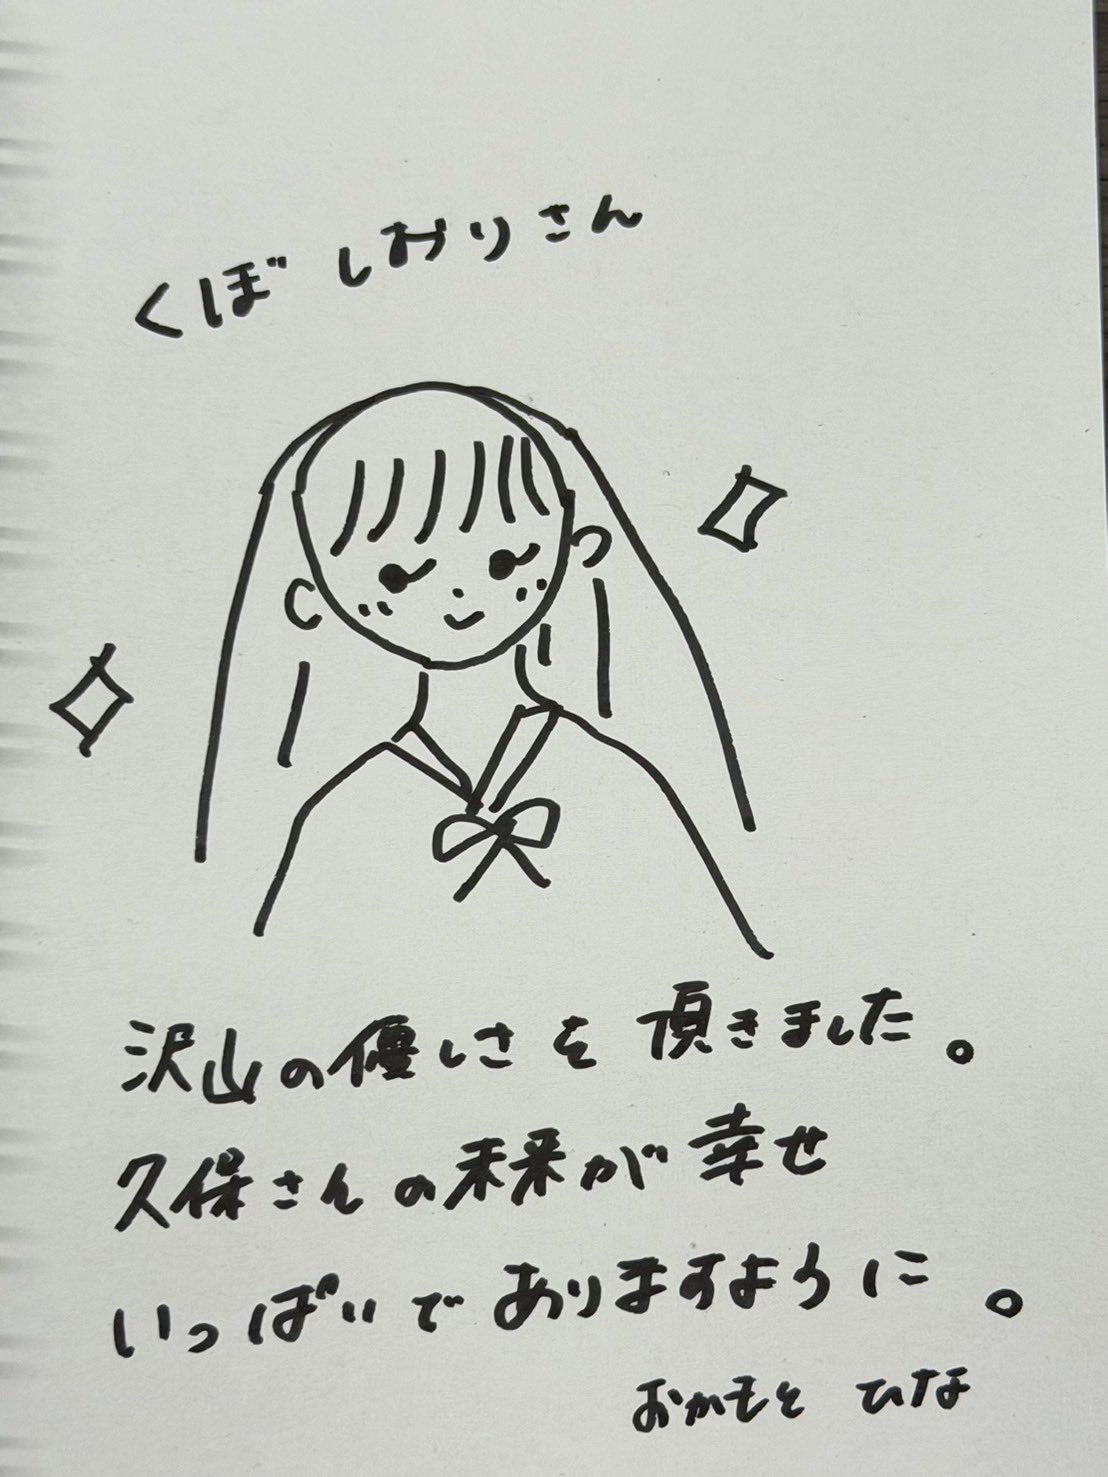 くぼ しおりさん
沢山の優しさを 頂きました。
久保さんの未来が幸せ
いっぱいでありますように。
おかもと ひな